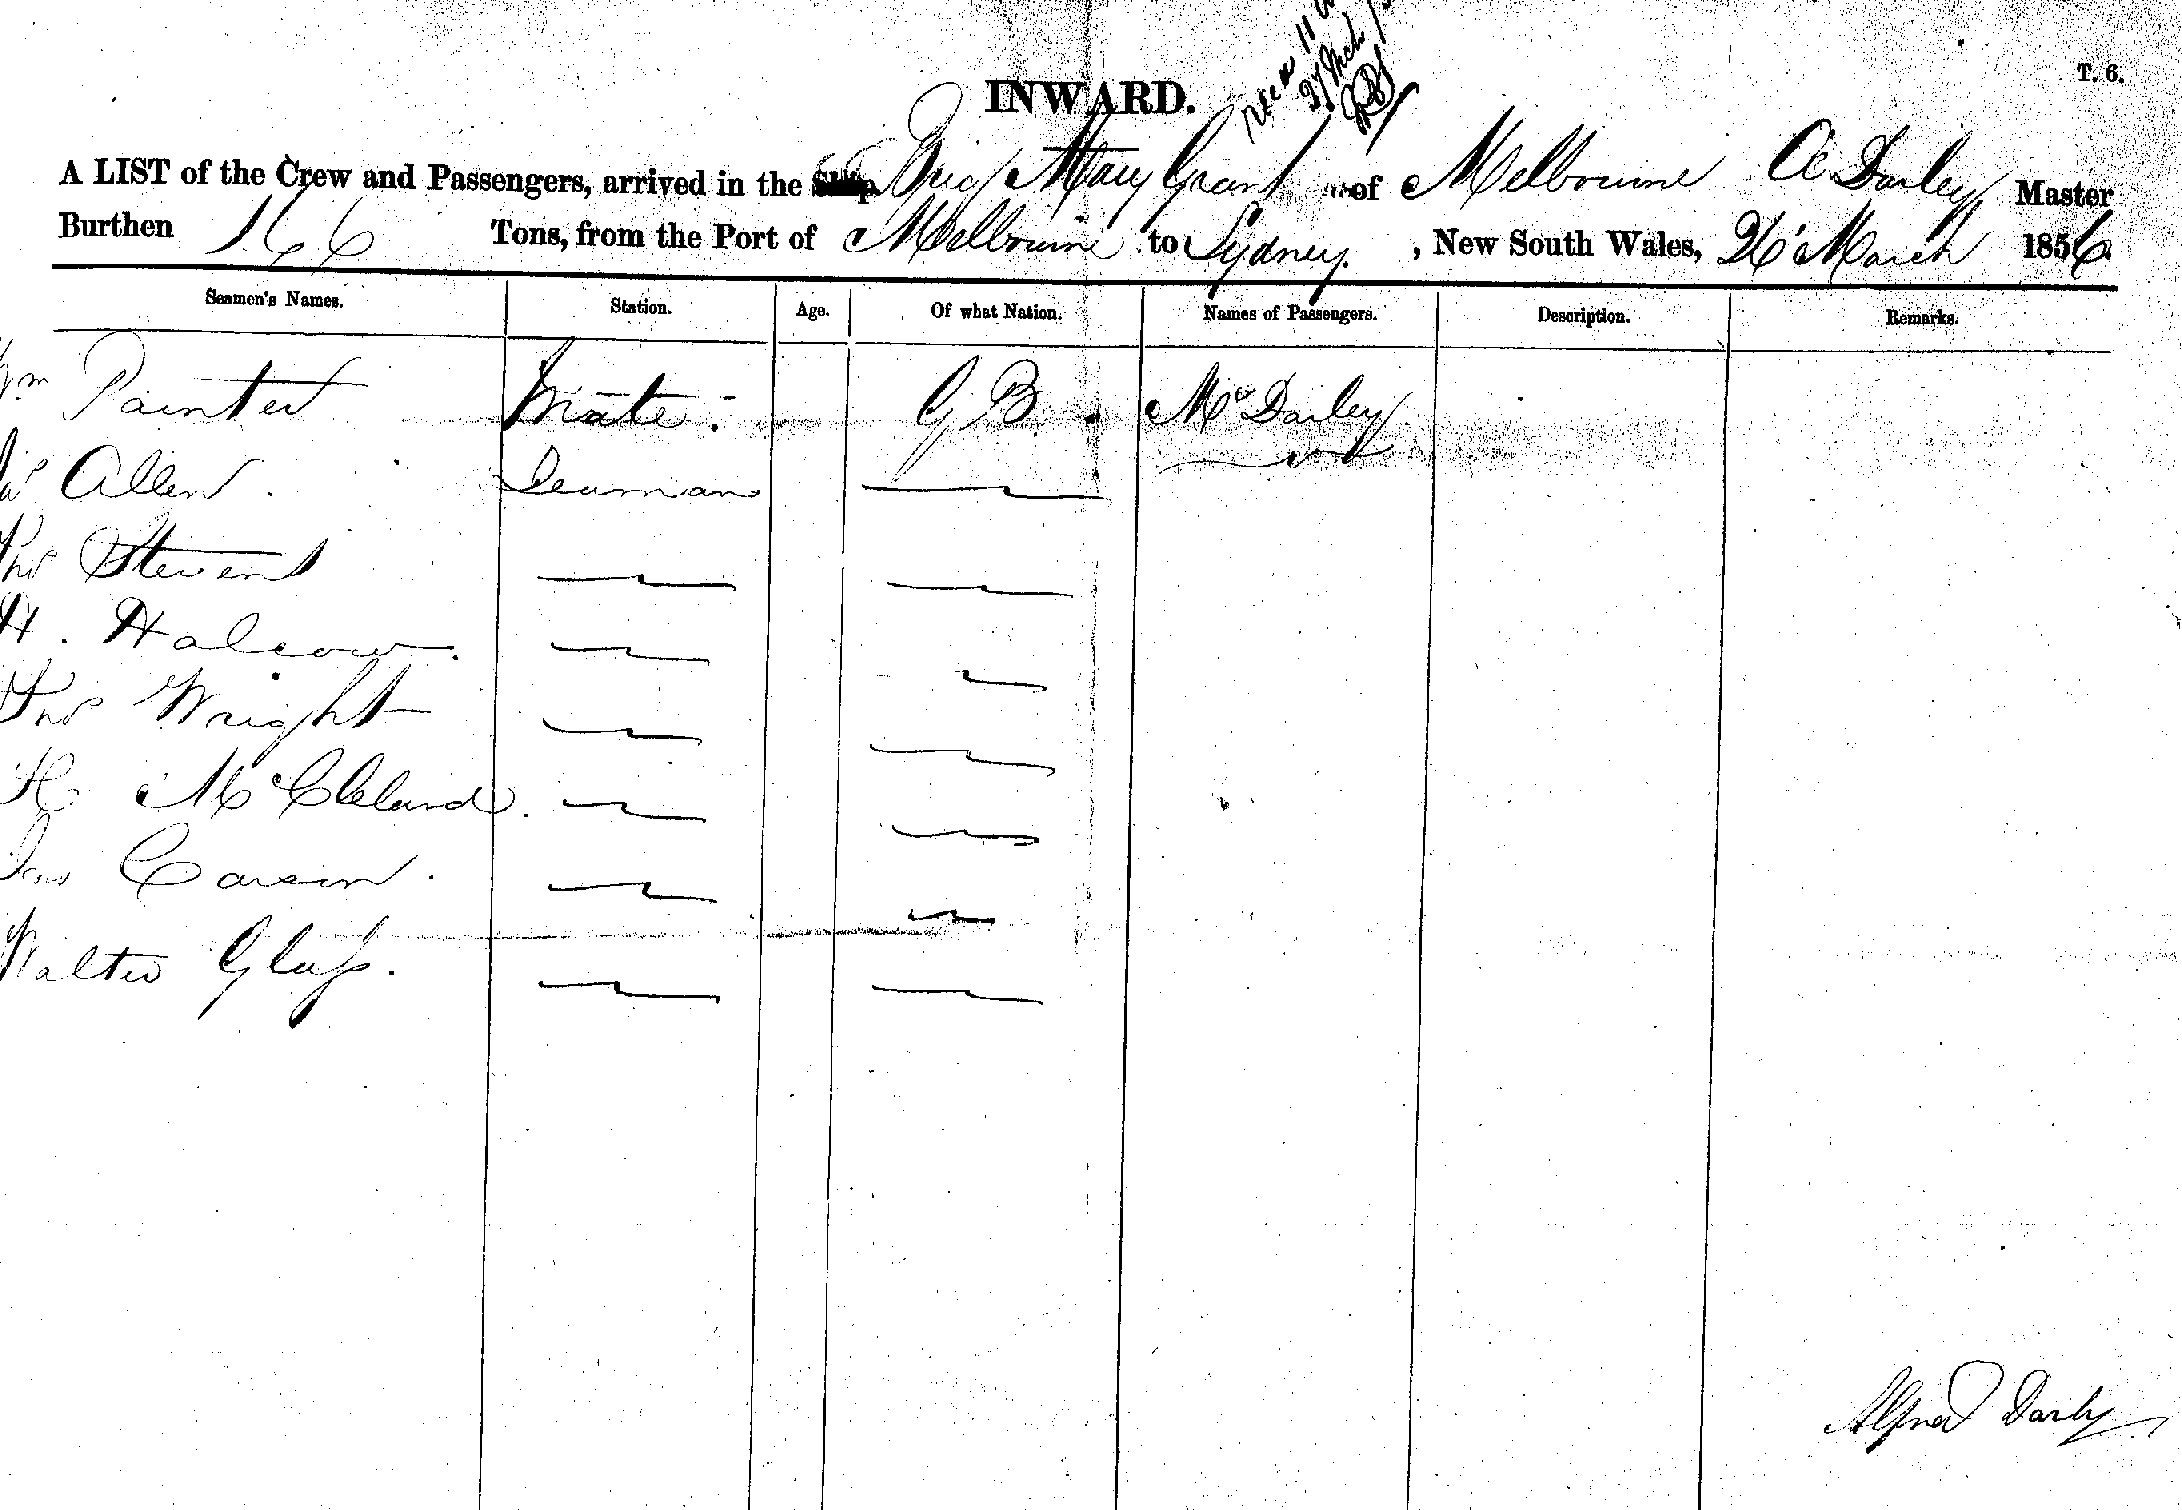 T. 6.
27 Mch
INWARD.
A LIST of the Crew and Passengers, arrived in the Ship Brig Mary Grant of Melbourne A Darley Master
Burthen 166 Tons, from the Port of Melbourne to Sydney, New South Wales, 26 March 1856
Seamen's Names. Station. Age. Of what Nation. Names of Passengers. Description. Remarks.
Wm Painter Mate G B. Mrs Darley
Allen Seaman
Thos Stevens
H. Halcow.
Thos Wright
H McCleland.
Jas
Walter Glass.
Alfred Darley